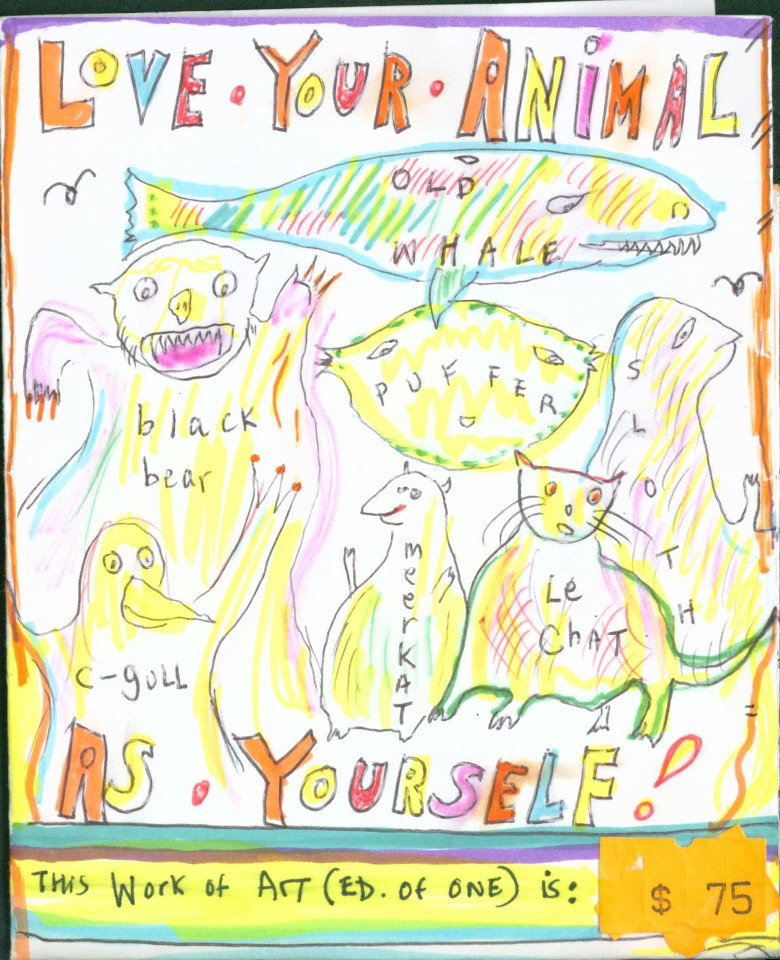 LOVE · YOUR · ANIMAL
OLD
WHALE
PUFFER
black
bear
SLOTH
meerKAT
Le
ChAT
C-gULL
AS · YOURSELF!
THIS WORK of ART (ED. of ONE) is:
$ 75